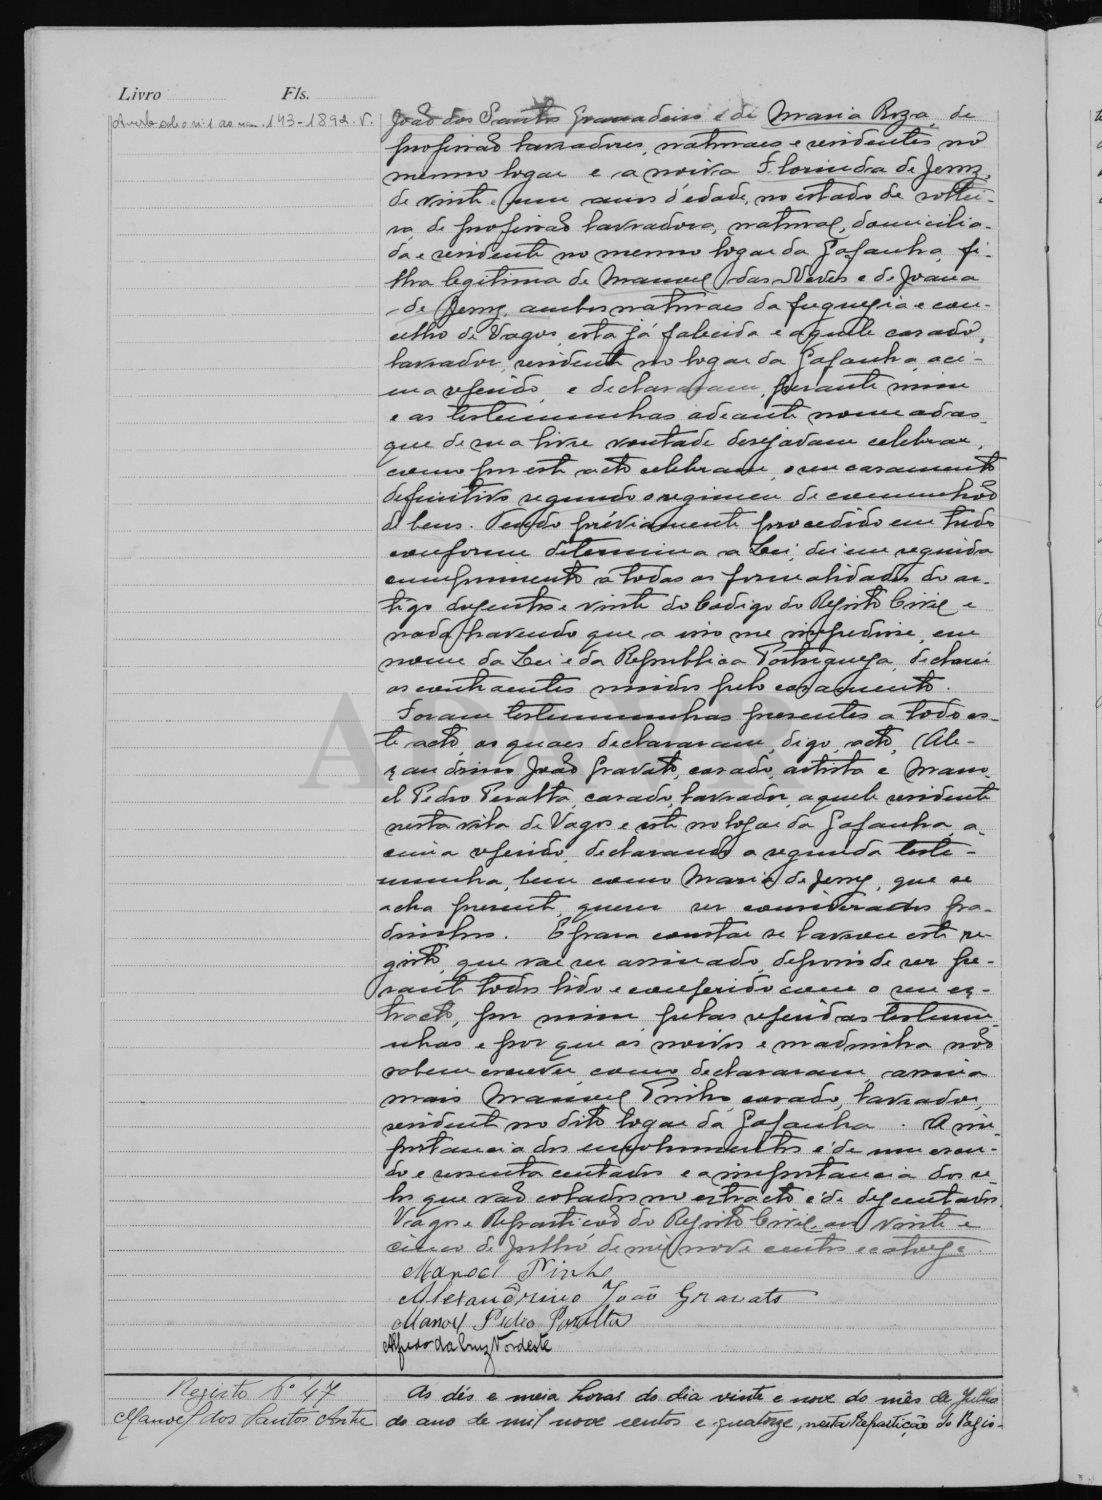 Livro Fls.
Averb. adic. nº 1 ao nº 143-1892. V.
João dos Santos Gramadeiro e de Maria Roza, de
profissão lavradores, naturaes e residentes no
mesmo logar e a noiva Florinda de Jesus,
de vinte e um anos d'edade, no estado de soltei-
ra, de profissão lavradora, natural, domicilia-
da e residente no mesmo logar da Gafanha, fi-
lha legitima de Manoel das Neves e de Joana
de Jesus, ambos naturaes da freguezia e con-
celho de Vagos, esta já falecida e aquele casado,
lavrador, residente no logar da Gafanha, aci-
ma referido, e declararam, perante mim
e as testemunhas adeante nomeadas
que de sua livre vontade desejavam celebrar,
como por este acto celebram, o seu casamento
definitivo segundo o regimen de communhão
de bens. Tendo préviamente procedido em tudo
conforme determina a Lei, dei em seguida
cumprimento a todas as formalidades do ar-
tigo duzentos e vinte do Codigo do Registo Civil e
nada havendo que a isso me impedisse, em
nome da Lei e da Republica Portugueza, declarei
os contraentes unidos pelo casamento.
Foram testemunhas presentes a todo es-
te acto, os quaes declararam, digo, acto, Ale-
xandrino João Gravato, casado, artista e Mano-
el Pedro Peralta, casado, lavrador, aquele residente
nesta vila de Vagos e este no logar da Gafanha, a-
cima referido, declarando a segunda teste-
munha, bem como Maria de Jesus, que se
acha presente, querer ser considerados pa-
drinhos. E para constar se lavrou este re-
gisto, que vae ser assinado, depois de ser pe-
rante todos lido e conferido com o seu ex-
tracto, por mim, pelas referidas testemu-
nhas e por que os noivos e madrinha não
sabem escrever, como declararam, assina
mais Manoel Pinho, casado, lavrador,
residente no dito logar da Gafanha. A im-
portancia dos emolumentos é de um escu-
do e sessenta centavos e a importancia dos se-
los que vão colados no extracto é de dez centavos.
Vagos e Repartição do Registo Civil, em vinte e
cinco de Julho de mil nove centos e catorze.
Manoel Pinho
Alexandrino João Gravato
Manoel Pedro Peralta
Alfredo da Cruz Nordeste
Registo Nº 47
Manoel dos Santos
As dés e meia horas do dia vinte e nove do mês de Julho
do ano de mil nove centos e quatorze, nesta Repartição do Regis-
ADAVR